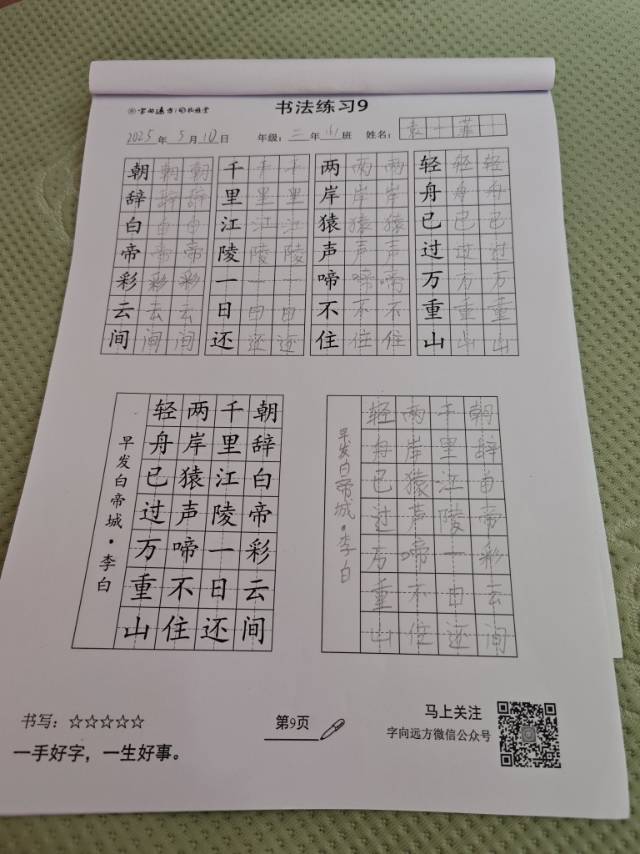 字向远方
书法练习9
2025年5月10日 年级：三年 班 姓名：袁一菲
朝辞白帝彩云间
朝辞白帝彩云间
朝辞白帝彩云间
千里江陵一日还
千里江陵一日还
千里江陵一日还
两岸猿声啼不住
两岸猿声啼不住
两岸猿声啼不住
轻舟已过万重山
轻舟已过万重山
轻舟已过万重山
朝辞白帝彩云间
千里江陵一日还
两岸猿声啼不住
轻舟已过万重山
早发白帝城·李白
朝辞白帝彩云间
千里江陵一日还
两岸猿声啼不住
轻舟已过万重山
早发白帝城·李白
书写：☆☆☆☆☆
一手好字，一生好事。
第9页
马上关注
字向远方微信公众号